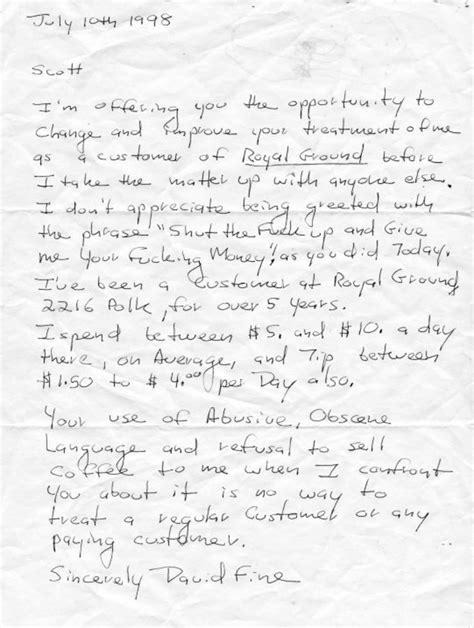 July 10th 1998
Scott
I'm offering you the opportunity to
Change and improve your treatment of me
as a customer of Royal Ground before
I take the matter up with anyone else.
I don't appreciate being greeted with
the phrase "Shut the Fuck up and Give
me Your Fucking Money", as you did Today.
I've been a Customer at Royal Ground
2216 Polk, for over 5 years.
I spend between $5. and $10. a day
there, on Average, and Tip between
$1.50 to $4.00 per Day also.
Your use of Abusive, Obscene
Language and refusal to sell
coffee to me when I confront
You about it is no way to
treat a regular Customer or any
paying customer.
Sincerely David Fine